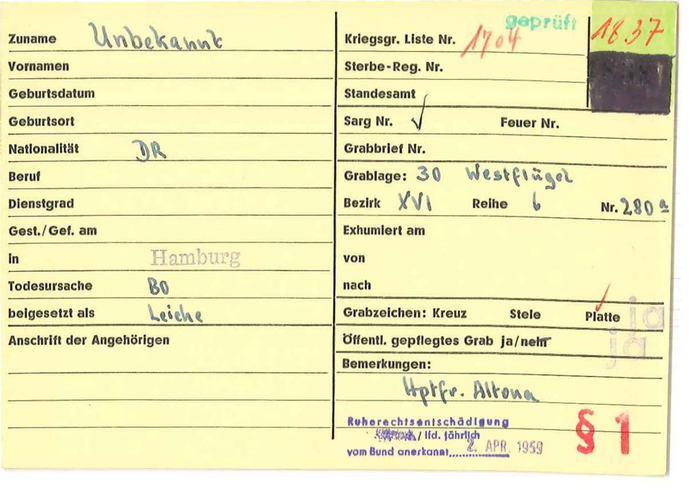 Zuname Unbekannt
Vornamen
Geburtsdatum
Geburtsort
Nationalität DR
Beruf
Dienstgrad
Gest./Gef. am
in Hamburg
Todesursache BO
beigesetzt als Leiche
Anschrift der Angehörigen
geprüft
1837
Kriegsgr. Liste Nr. 1704
Sterbe-Reg. Nr.
Standesamt
Sarg Nr. ✓ Feuer Nr.
Grabbrief Nr.
Grablage: 30 Westflügel
Bezirk XVI Reihe 6 Nr. 280a
Exhumiert am
von
nach
Grabzeichen: Kreuz Stele Platte ja
Öffentl. gepflegtes Grab ja/nein ja
Bemerkungen:
Hptfr. Altona
Ruherechtsentschädigung
/ lfd. jährlich
vom Bund anerkannt 2. APR. 1959
§ 1